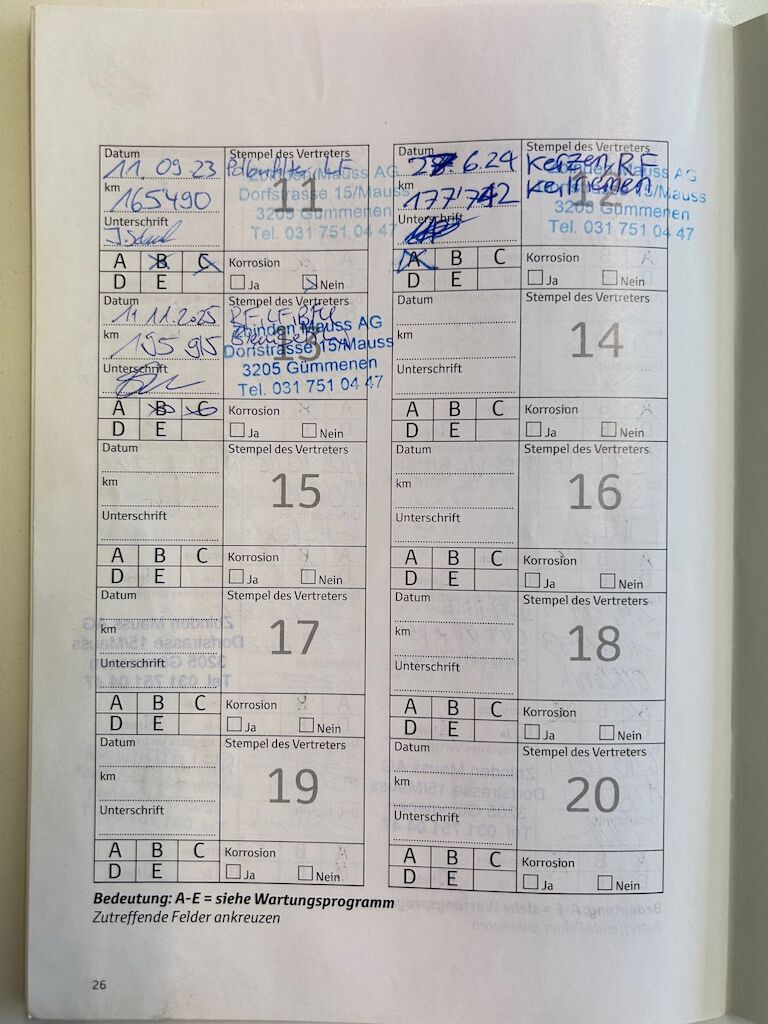 Datum
11.09.23
km
165490
Unterschrift
Stempel des Vertreters
11
Zbinden Mauss AG
Dorfstrasse 15/Mauss
3205 Gümmenen
Tel. 031 751 04 47
A B C
D E
Korrosion
Ja Nein
Datum
27.6.24
km
177'742
Unterschrift
Stempel des Vertreters
Kerzen RF
Keilriemen
12
Zbinden Mauss AG
Dorfstrasse 15/Mauss
3205 Gümmenen
Tel. 031 751 04 47
A B C
D E
Korrosion
Ja Nein
Datum
11.11.2025
km
195 915
Unterschrift
Stempel des Vertreters
RF, LF,
13
Zbinden Mauss AG
Dorfstrasse 15/Mauss
3205 Gümmenen
Tel. 031 751 04 47
A B C
D E
Korrosion
Ja Nein
Datum
km
Unterschrift
Stempel des Vertreters
14
A B C
D E
Korrosion
Ja Nein
Datum
km
Unterschrift
Stempel des Vertreters
15
A B C
D E
Korrosion
Ja Nein
Datum
km
Unterschrift
Stempel des Vertreters
16
A B C
D E
Korrosion
Ja Nein
Datum
km
Unterschrift
Stempel des Vertreters
17
A B C
D E
Korrosion
Ja Nein
Datum
km
Unterschrift
Stempel des Vertreters
18
A B C
D E
Korrosion
Ja Nein
Datum
km
Unterschrift
Stempel des Vertreters
19
A B C
D E
Korrosion
Ja Nein
Datum
km
Unterschrift
Stempel des Vertreters
20
A B C
D E
Korrosion
Ja Nein
Bedeutung: A-E = siehe Wartungsprogramm
Zutreffende Felder ankreuzen
26